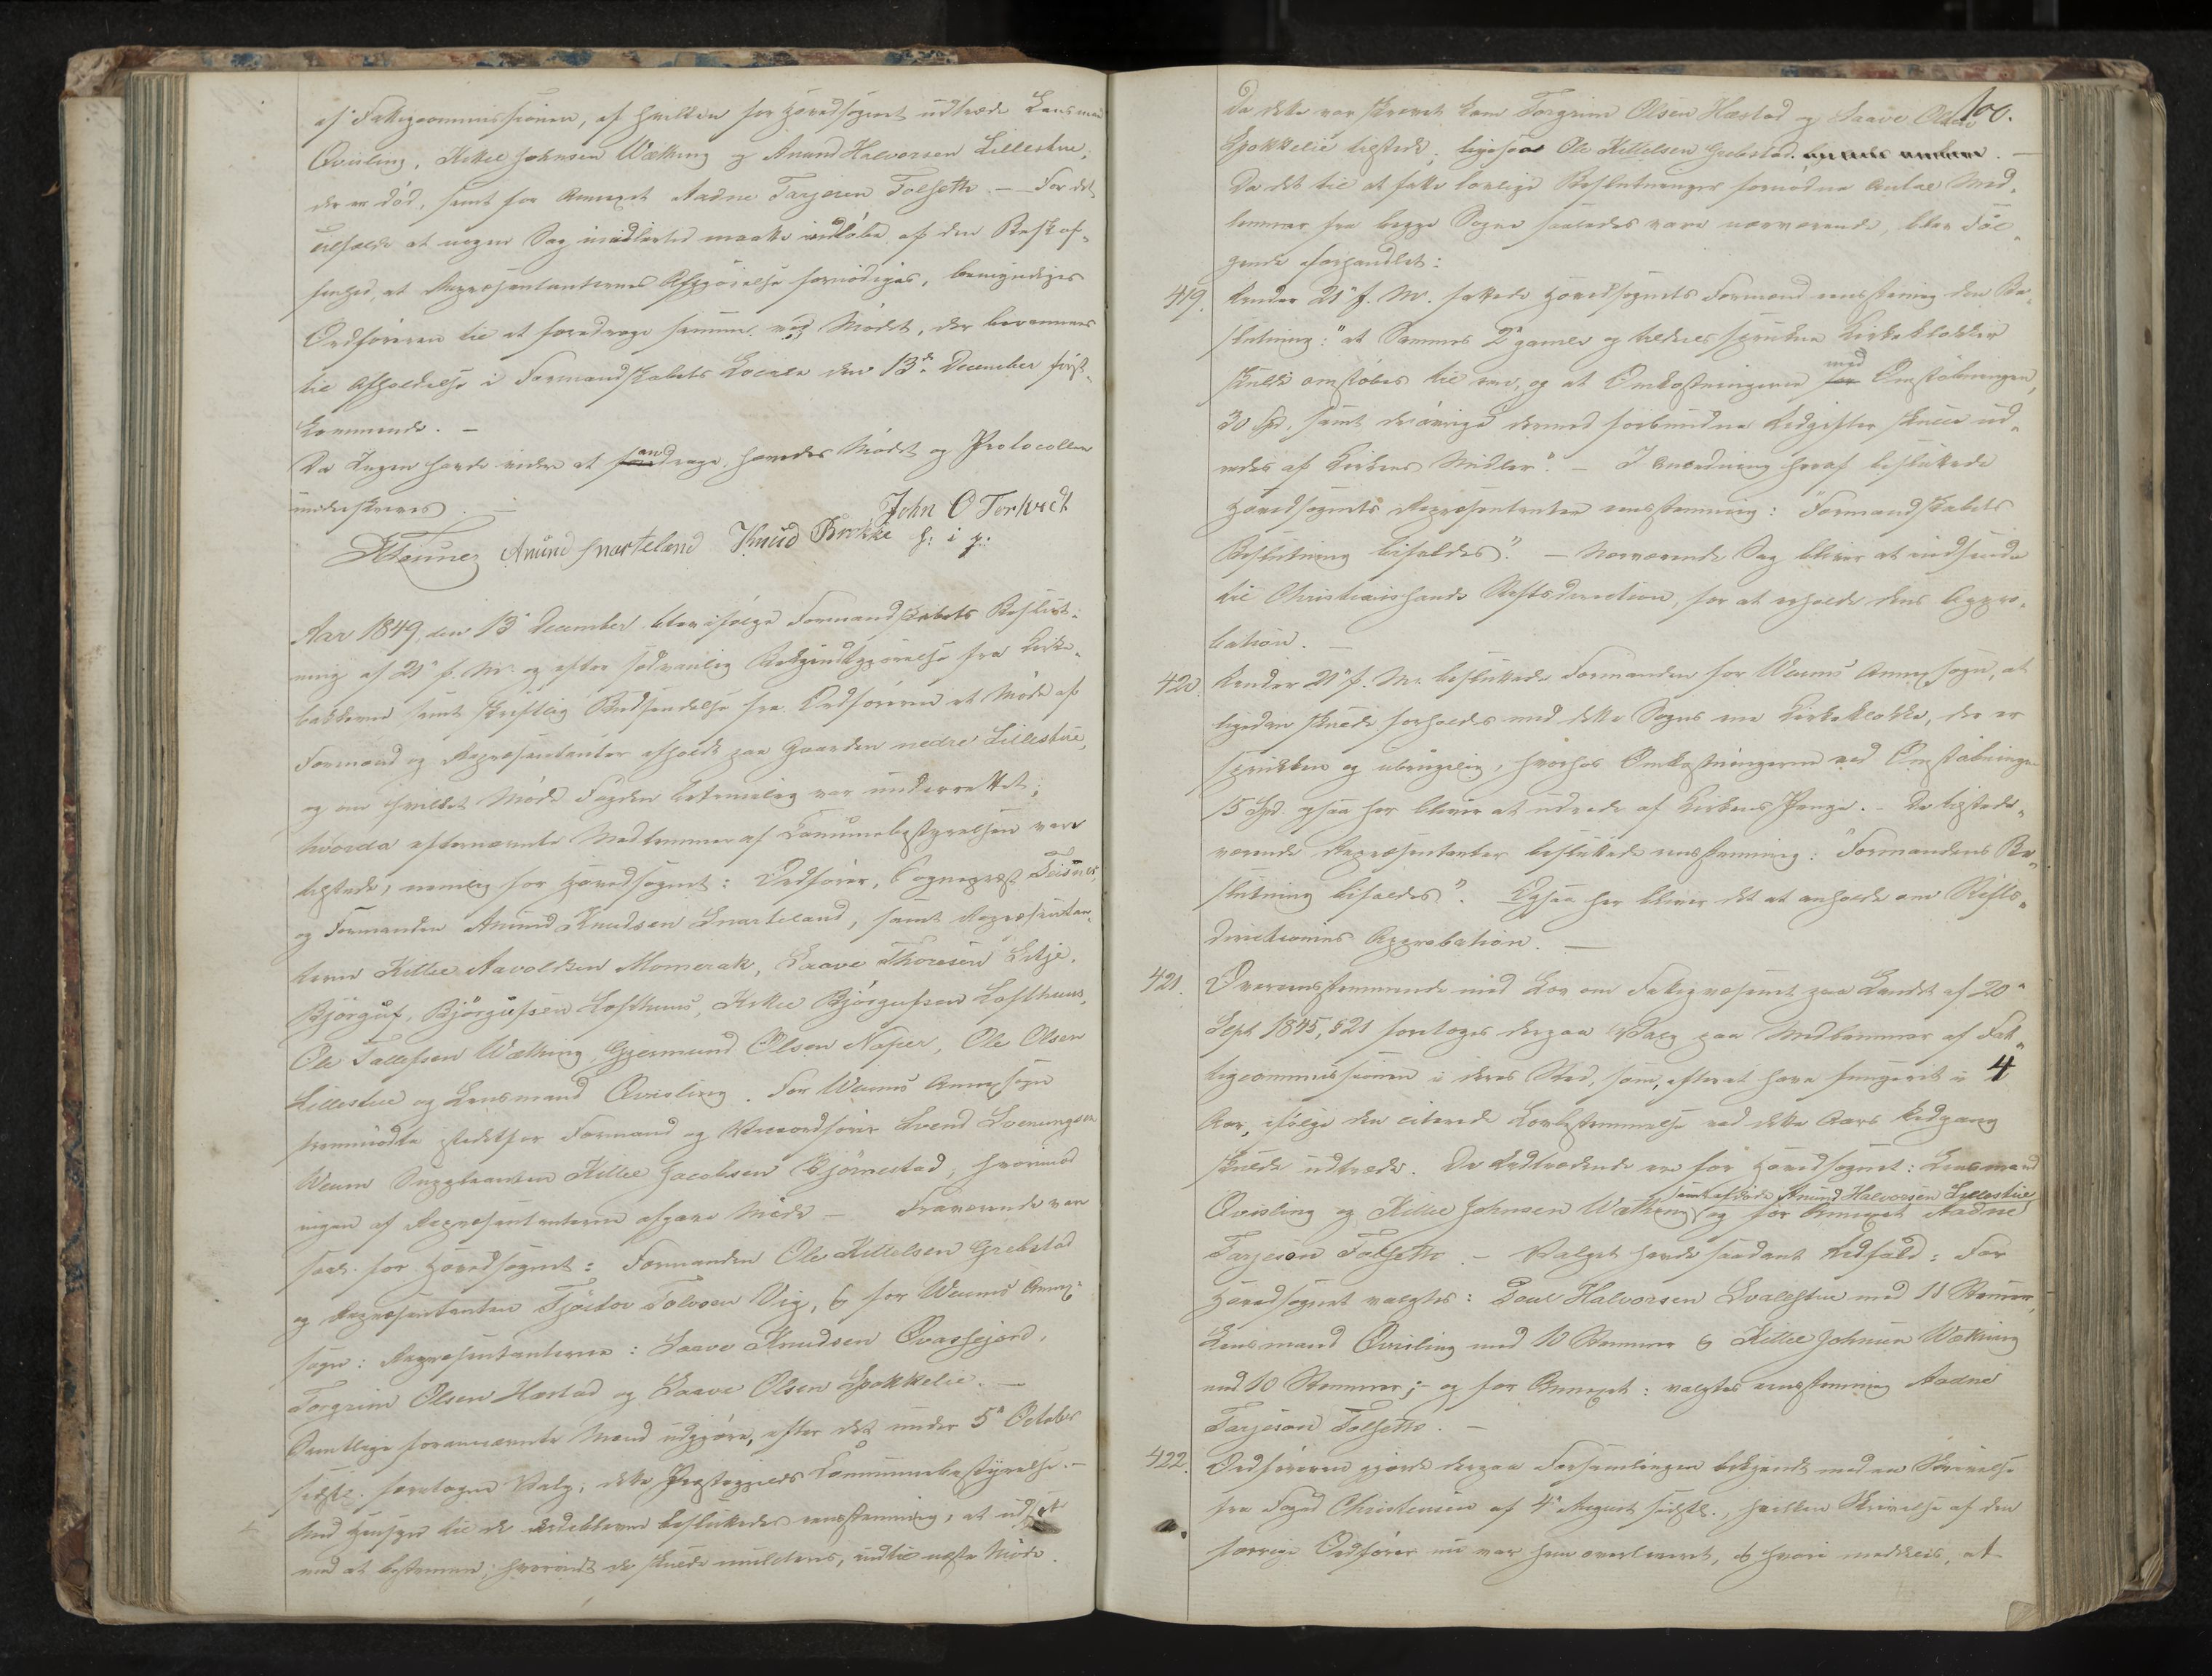 af Fattigcommissionen, af hvilken for Hovedsognet udtræde Lensmand
Qvisling, Kittel Johnsen Wæthing og Anund Halvorsen Lillestue,
der er død, samt for Annexet Aadne Tarjesen Tolseth. — For det
Tilfælde at nogen Sag imidlertid maatte indløbe af den Beskaf-
fenhed, at Repræsentanternes Afgjørelse fornødiges, bemyndiges
Ordføreren til at foredrage samme ved Mødet, der berammes
til Afholdelse i Formandskabets Locale den 13de December først-
kommende. —
Da Ingen havde videre at andrage, hævedes Mødet og Protocollen
underskreves. —
John O Tortveit
Teisner Anund Snarteland Knud Brokke h: i p:
Aar 1849, den 13de December blev ifølge Formandskabets Beslut-
ning af 21de f. M. og efter sædvanlig Bekjendtgjørelse fra Kirke-
bakkerne samt skriftlig Budsendelse fra Ordføreren et Møde af
Formænd og Repræsentanter afholdt paa Gaarden nedre Lillestue,
og om hvilket Møde Fogden betimelig var underrettet;
hvorda efternævnte Medlemmer af Communebestyrelsen vare
tilstede, nemlig for Hovedsognet: Ordfører, Sognepræst Teisner,
og Formanden Anund Knudsen Snarteland, samt Repræsentan-
terne Kittel Aavoldsen Momerak, Saave Thoresen Litje,
Bjørguf Bjørgufsen Lofthuus, Kittel Bjørgufsen Lofthuus,
Ole Tallefsen Wæthing, Gjermund Olsen Noper, Ole Olsen
Lillestue og Lensmand Qvisling. For Weums Annexsogn
fremmødte istedetfor Formand og Viceordfører Svend Svenungsen
Weum Suppleanten Kittel Jacobsen Bjørnestad, hvorimod
ingen af Repræsentanterne afgave Møde — Fraværende var
saal. for Hovedsognet: Formanden Ole Kittelsen Grebstad
og Repræsentanten Tjøstov Tolvsen Vig, & for Weums Annex-
sogn: Repræsentanterne: Saave Knudsen Qvassejord,
Torgrim Olsen Hæstad og Saave Olsen Spokkelie. —
Samtlige forannævnte Mænd udgjøre, efter det under 5te October
sidstl. foretagne Valg, dette Præstegjelds Communebestyrelse. —
Med Hensyn til de Udeblevne besluttedes eenstemmig, at udsætte
med at bestemme, hvorvidt de skulde mulcteres, indtil næste Møde.
100.
Da dette var skrevet kom Torgrim Olsen Hæstad og Saave Olsen
Spokkelie tilstede, ligesaa Ole Kittelsen Grebstad. —
Da det til at fatte lovlige Beslutninger fornødne Antal Med-
lemmer fra begge Sogne saaledes vare nærværende, blev Føl-
gende forhandlet:
419. Under 21de f. M. fattede Hovedsognets Formænd eenstemmig den Be-
slutning: "at Sammes 2de gamle og tildels sprukne Kirkeklokker
skulle omstøbes til een, og at Omkostningerne med Omstøbningen,
30 Spd., samt de øvrige dermed forbundne Udgifter skulle ud-
redes af Kirkens Midler". — I Anledning heraf besluttede
Hovedsognets Repræsentanter eenstemmig: "Formandskabets
Beslutning bifaldes". — Nærværende Sag bliver at indsende
til Christianssands Stiftsdirection, for at erholde dens Appro-
bation. —
420. Under 21de f. M. besluttede Formanden for Weums Annexsogn, at
ligedan skulde forholdes med dette Sogns ene Kirkeklokke, der er
sprukken og ubrugelig, hvorhos Omkostningerne ved Omstøbningen
15 Spd. ogsaa her bliver at udrede af Kirkens Penge. — De tilstede-
værende Repræsentanter besluttede eenstemmig: "Formandens Be-
slutning bifaldes". Ogsaa her bliver det at anholde om Stifts-
directionens Approbation. —
421. Overeensstemmende med Lov om Fattigvæsenet paa Landet af 20de
Sept. 1845, §21 foretoges derpaa Valg paa Medlemmer af Fat-
tigcommissionen i deres Sted, som, efterat have fungeret i 4
Aar, ifølge den citerede Lovbestemmelse ved dette Aars Udgang
skulde udtræde. De Udtrædende ere for Hovedsognet: Lensmand
samt afdøde Anund Halvorsen Lillestue
Qvisling og Kittel Johnsen Wæthing og for Annexet Aadne
Tarjeson Tolseth. — Valget havde saadant Udfald: For
Hovedsognet valgtes: Poul Halvorsen Svalestue med 11 Stemmer,
Lensmand Qvisling med 10 Stemmer & Kittel Johnsen Wæthing
med 10 Stemmer; — og for Annexet: valgtes eenstemmig Aadne
Tarjeson Tolseth. —
422. Ordføreren gjorde derpaa Forsamlingen bekjendt med en Skrivelse
fra Foged Christensen af 4de August sidstl., hvilken Skrivelse af den
forrige Ordfører nu var ham overleveret, & hvori meddeles, at